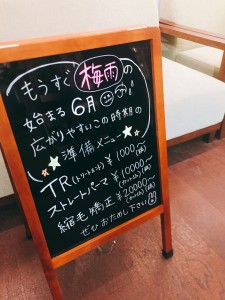 もうすぐ梅雨の
始まる6月
広がりやすいこの時期の
準備メニュー
TR(トリートメント)¥1000〜(税)
ストレートパーマ¥10000〜(税)
縮毛矯正¥20000〜(税)
ぜひおためし下さい